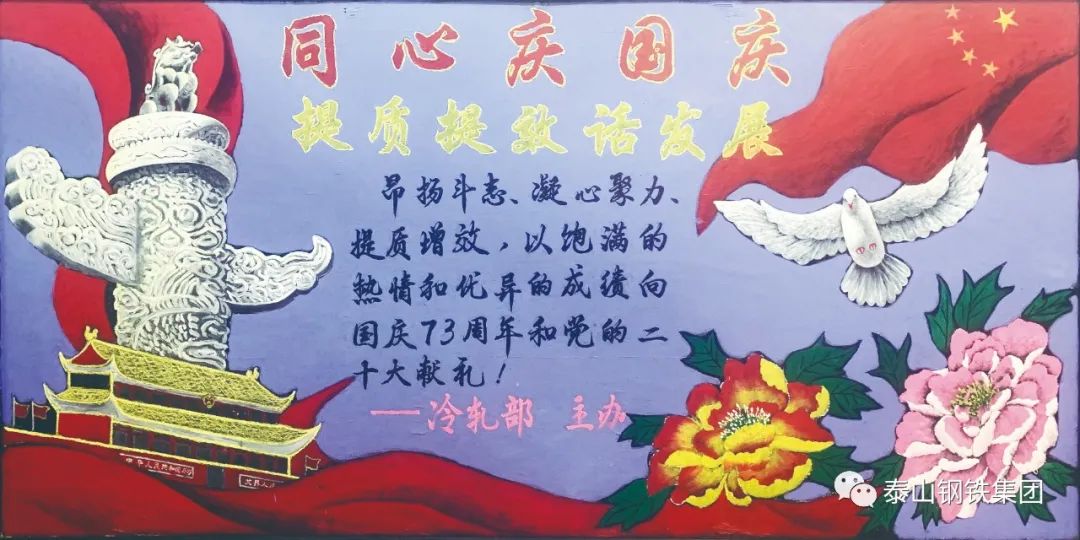 同心庆国庆
提质提效话发展
昂扬斗志、凝心聚力、
提质增效，以饱满的
热情和优异的成绩向
国庆73周年和党的二
十大献礼！
——冷轧部 主办
泰山钢铁集团